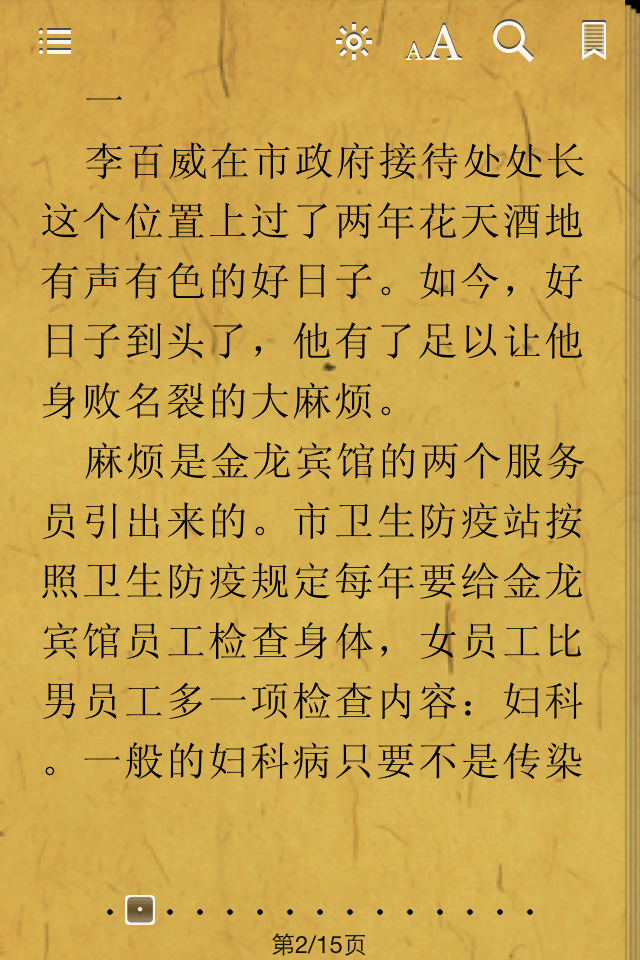 AA
一
李百威在市政府接待处处长
这个位置上过了两年花天酒地
有声有色的好日子。如今，好
日子到头了，他有了足以让他
身败名裂的大麻烦。
麻烦是金龙宾馆的两个服务
员引出来的。市卫生防疫站按
照卫生防疫规定每年要给金龙
宾馆员工检查身体，女员工比
男员工多一项检查内容：妇科
。一般的妇科病只要不是传染
第2/15页